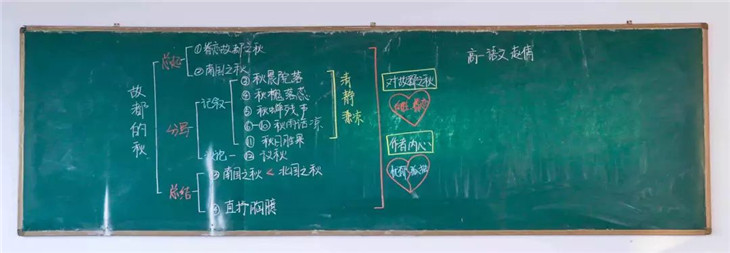 高一语文赵倩
故都的秋
总起
①眷恋故都之秋
②南国之秋
分写
记叙
③秋晨坠落
④秋槐落蕊
⑤秋蝉残声
⑥—⑩秋雨话凉
⑪秋日胜果
议论
⑫议秋
清静凉
总结
⑬南国之秋 < 北国之秋
⑭直抒胸臆
对故都之秋
眷恋
作者内心